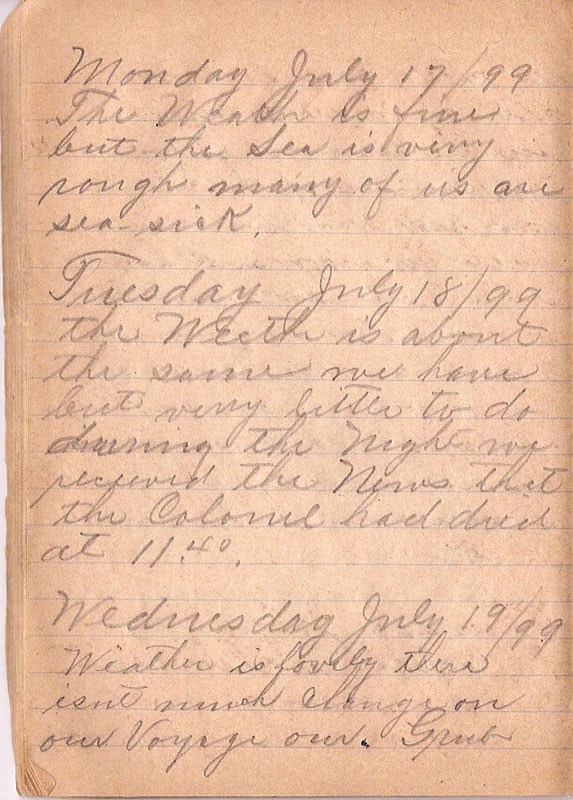 Monday July 17/99
The Weath is fine
but the Sea is very
rough many of us are
sea-sick.
Tuesday July 18/99
the Weathe is about
the same we have
but very little to do
during the Night we
recieved the News that
the Colonel had died
at 11.40.
Wednesday July 19/99
Weather is lovely there
isnt much change on
our Voyage our. Grub